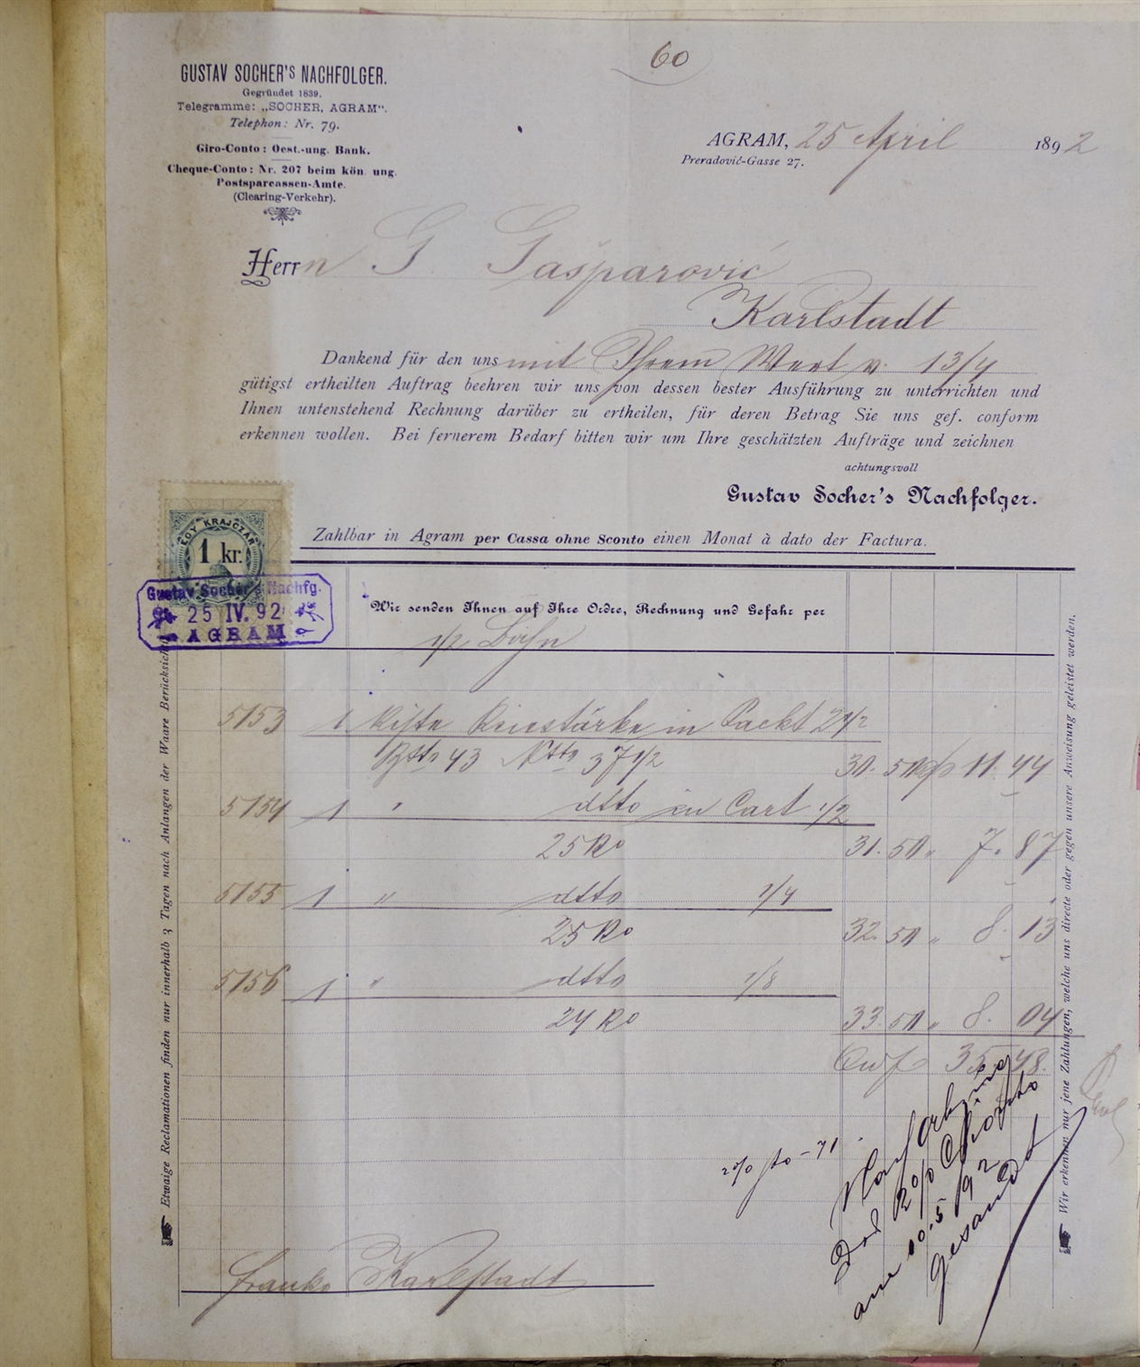 60
GUSTAV SOCHER'S NACHFOLGER.
Gegründet 1839.
Telegramme: „SOCHER, AGRAM".
Telephon: Nr. 79.
Giro-Conto: Oest.-ung. Bank.
Cheque-Conto: Nr. 207 beim kön. ung.
Postsparcassen-Amte.
(Clearing-Verkehr).
AGRAM, 25 April 1892
Preradović-Gasse 27.
Herrn G. Gašparović
Karlstadt
Dankend für den uns mit Ihrem Wert v. 13/4
gütigst ertheilten Auftrag beehren wir uns von dessen bester Ausführung zu unterrichten und
Ihnen untenstehend Rechnung darüber zu ertheilen, für deren Betrag Sie uns gef. conform
erkennen wollen. Bei fernerem Bedarf bitten wir um Ihre geschätzten Aufträge und zeichnen
achtungsvoll
Gustav Socher's Nachfolger.
Zahlbar in Agram per Cassa ohne Sconto einen Monat à dato der Factura.
EGY KRAJCZÁR
1 kr.
Gustav Socher's Nachfg.
25 IV. 92
AGRAM
Wir senden Ihnen auf Ihre Ordre, Rechnung und Gefahr per
p. Bahn
5153 1 Kiste Reisstärke in Packt
Btto 43 Ntto 37 1/2 30. 50 11. 44
5154 1 " dtto in Cart 1/2
25 Ko 31. 50 " 7. 87
5155 1 " dtto 1/4
25 Ko 32. 50 " 8. 13
5156 1 " dtto 1/8
24 Ko 33. 50 " 8. 04
35.48.
2% - 71
Nach Abzug
2% Sconto
am 10.5 92
gesandt
franko Karlstadt
Etwaige Reclamationen finden nur innerhalb 3 Tagen nach Anlangen der Waare
Wir erkennen nur jene Zahlungen, welche uns directe oder gegen unsere Anweisung geleistet werden.